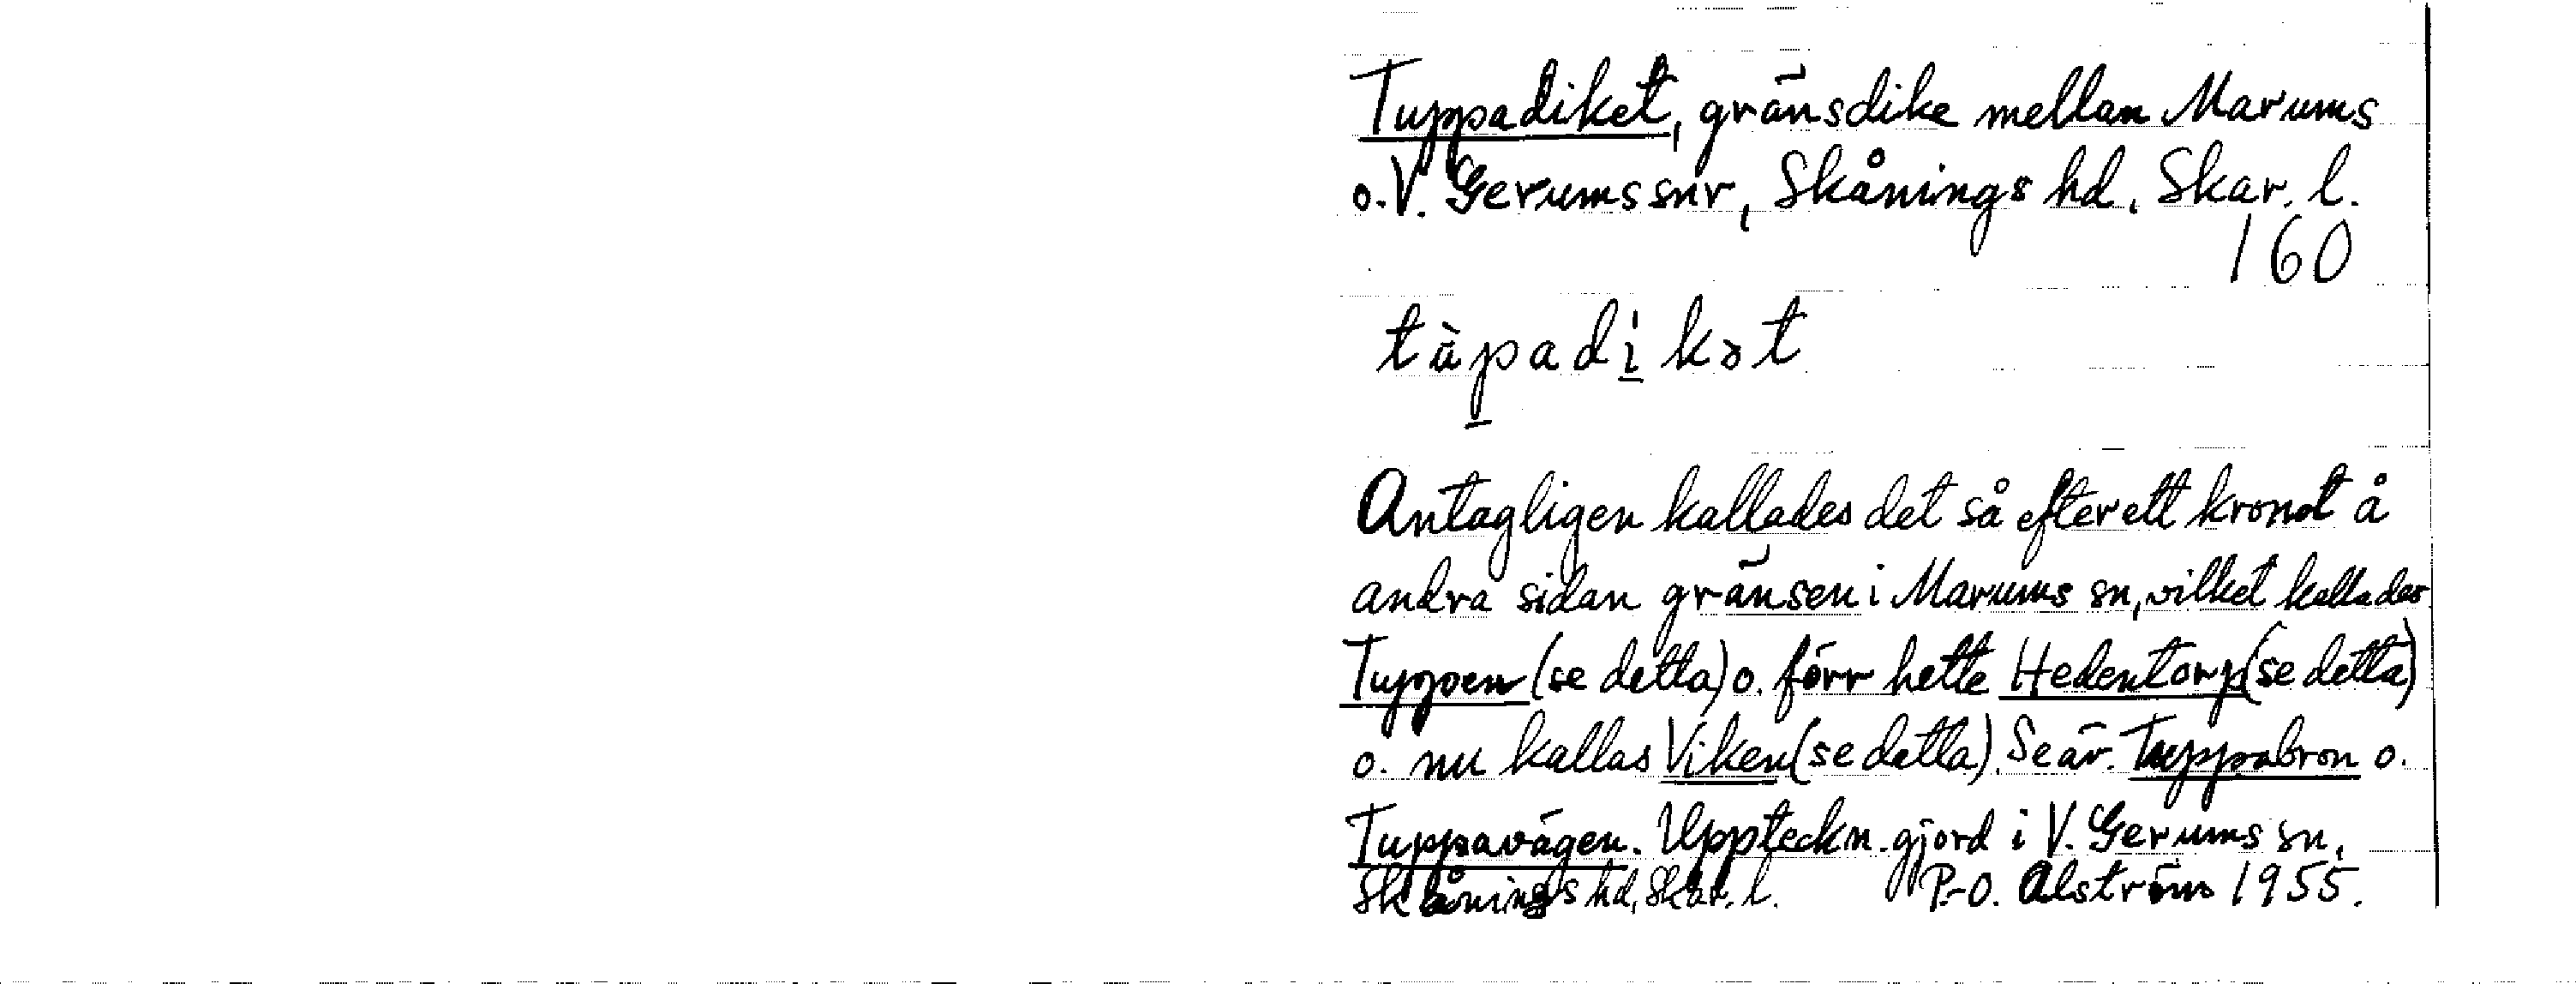 Tuppadiket, gränsdike mellan Marums
o. V. Gerums snr, Skånings hd, Skar. l.
160
tùpadi̱kət
Antagligen kallades det så efter ett kronot å
andra sidan gränsen i Marums sn, vilket kallades
Tuppen (se detta) o. förr hette Hedentorp (se detta)
o. nu kallas Viken (se detta). Se äv. Tuppabron o.
Tuppavägen. Uppteckn. gjord i V. Gerums sn,
Skånings hd, Skar. l. P.-O. Alström 1955.